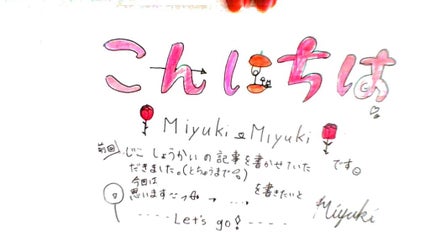 こんにちは
Miyuki Miyuki
前回 じこしょうかいの記事を書かせていた
だきました。(とちゅうまで) です
今回は
思います を書きたいと
Let's go!
Miyuki